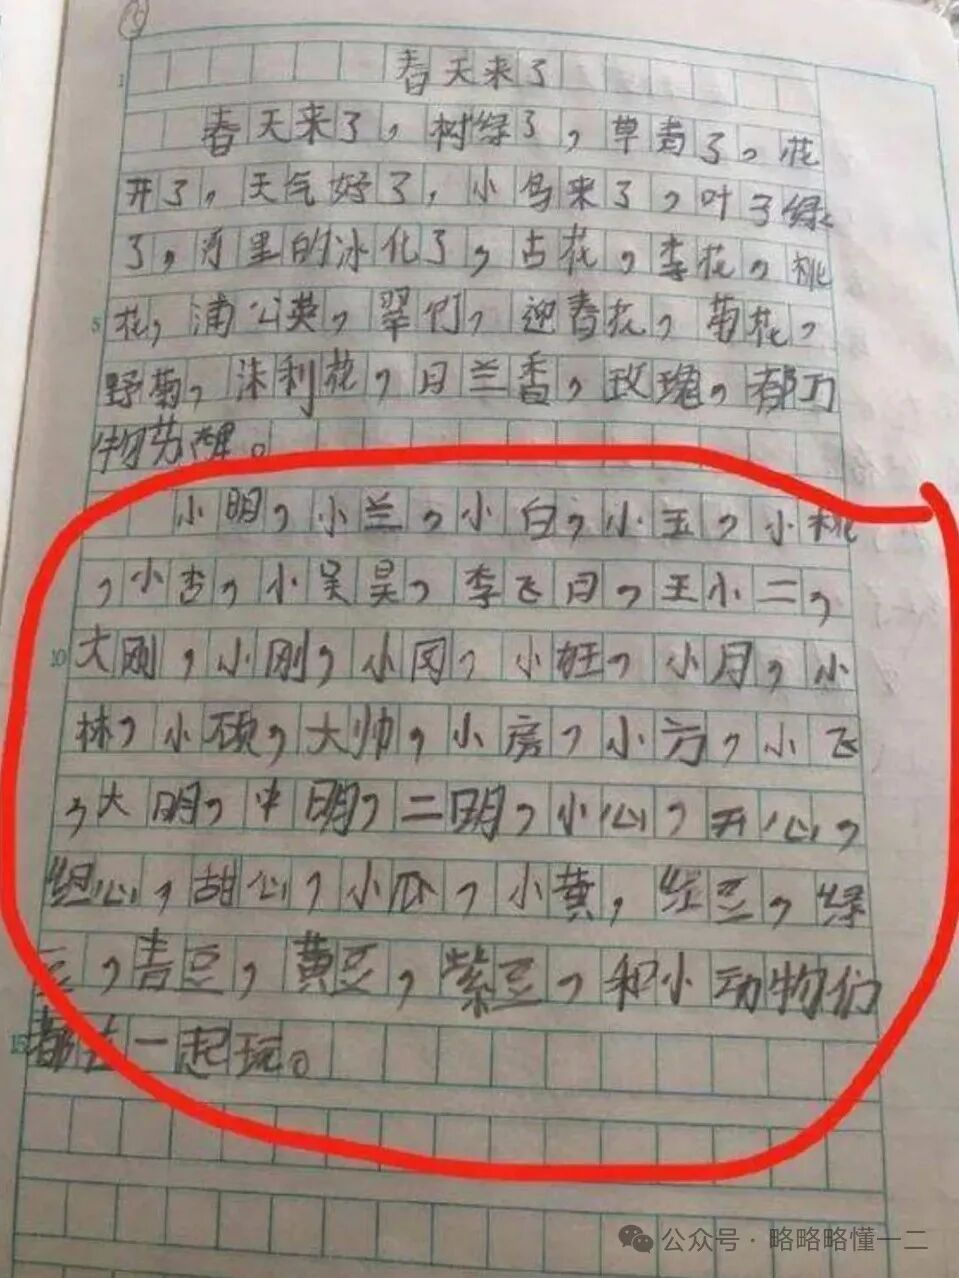 春天来了
春天来了，树绿了，草青了，花
开了，天气好了，小鸟来了，叶子绿
了，河里的冰化了，古花，李花，桃
花，浦公英，翠竹，迎春花，菊花，
野菊，沫利花，月兰香，玫瑰，都万
物苏醒。
小明，小兰，小白，小玉，小桃
，小杏，小吴昊，李飞月，王小二，
大刚，小刚，小冈，小旺，小月，小
林，小硕，大帅，小房，小方，小飞
，大明，中明，二明，小心，开心，
甜心，胡心，小瓜，小黄，红豆，绿
豆，青豆，黄豆，紫豆，和小动物们
都在一起玩。
公众号·略略略懂一二
5
10
15